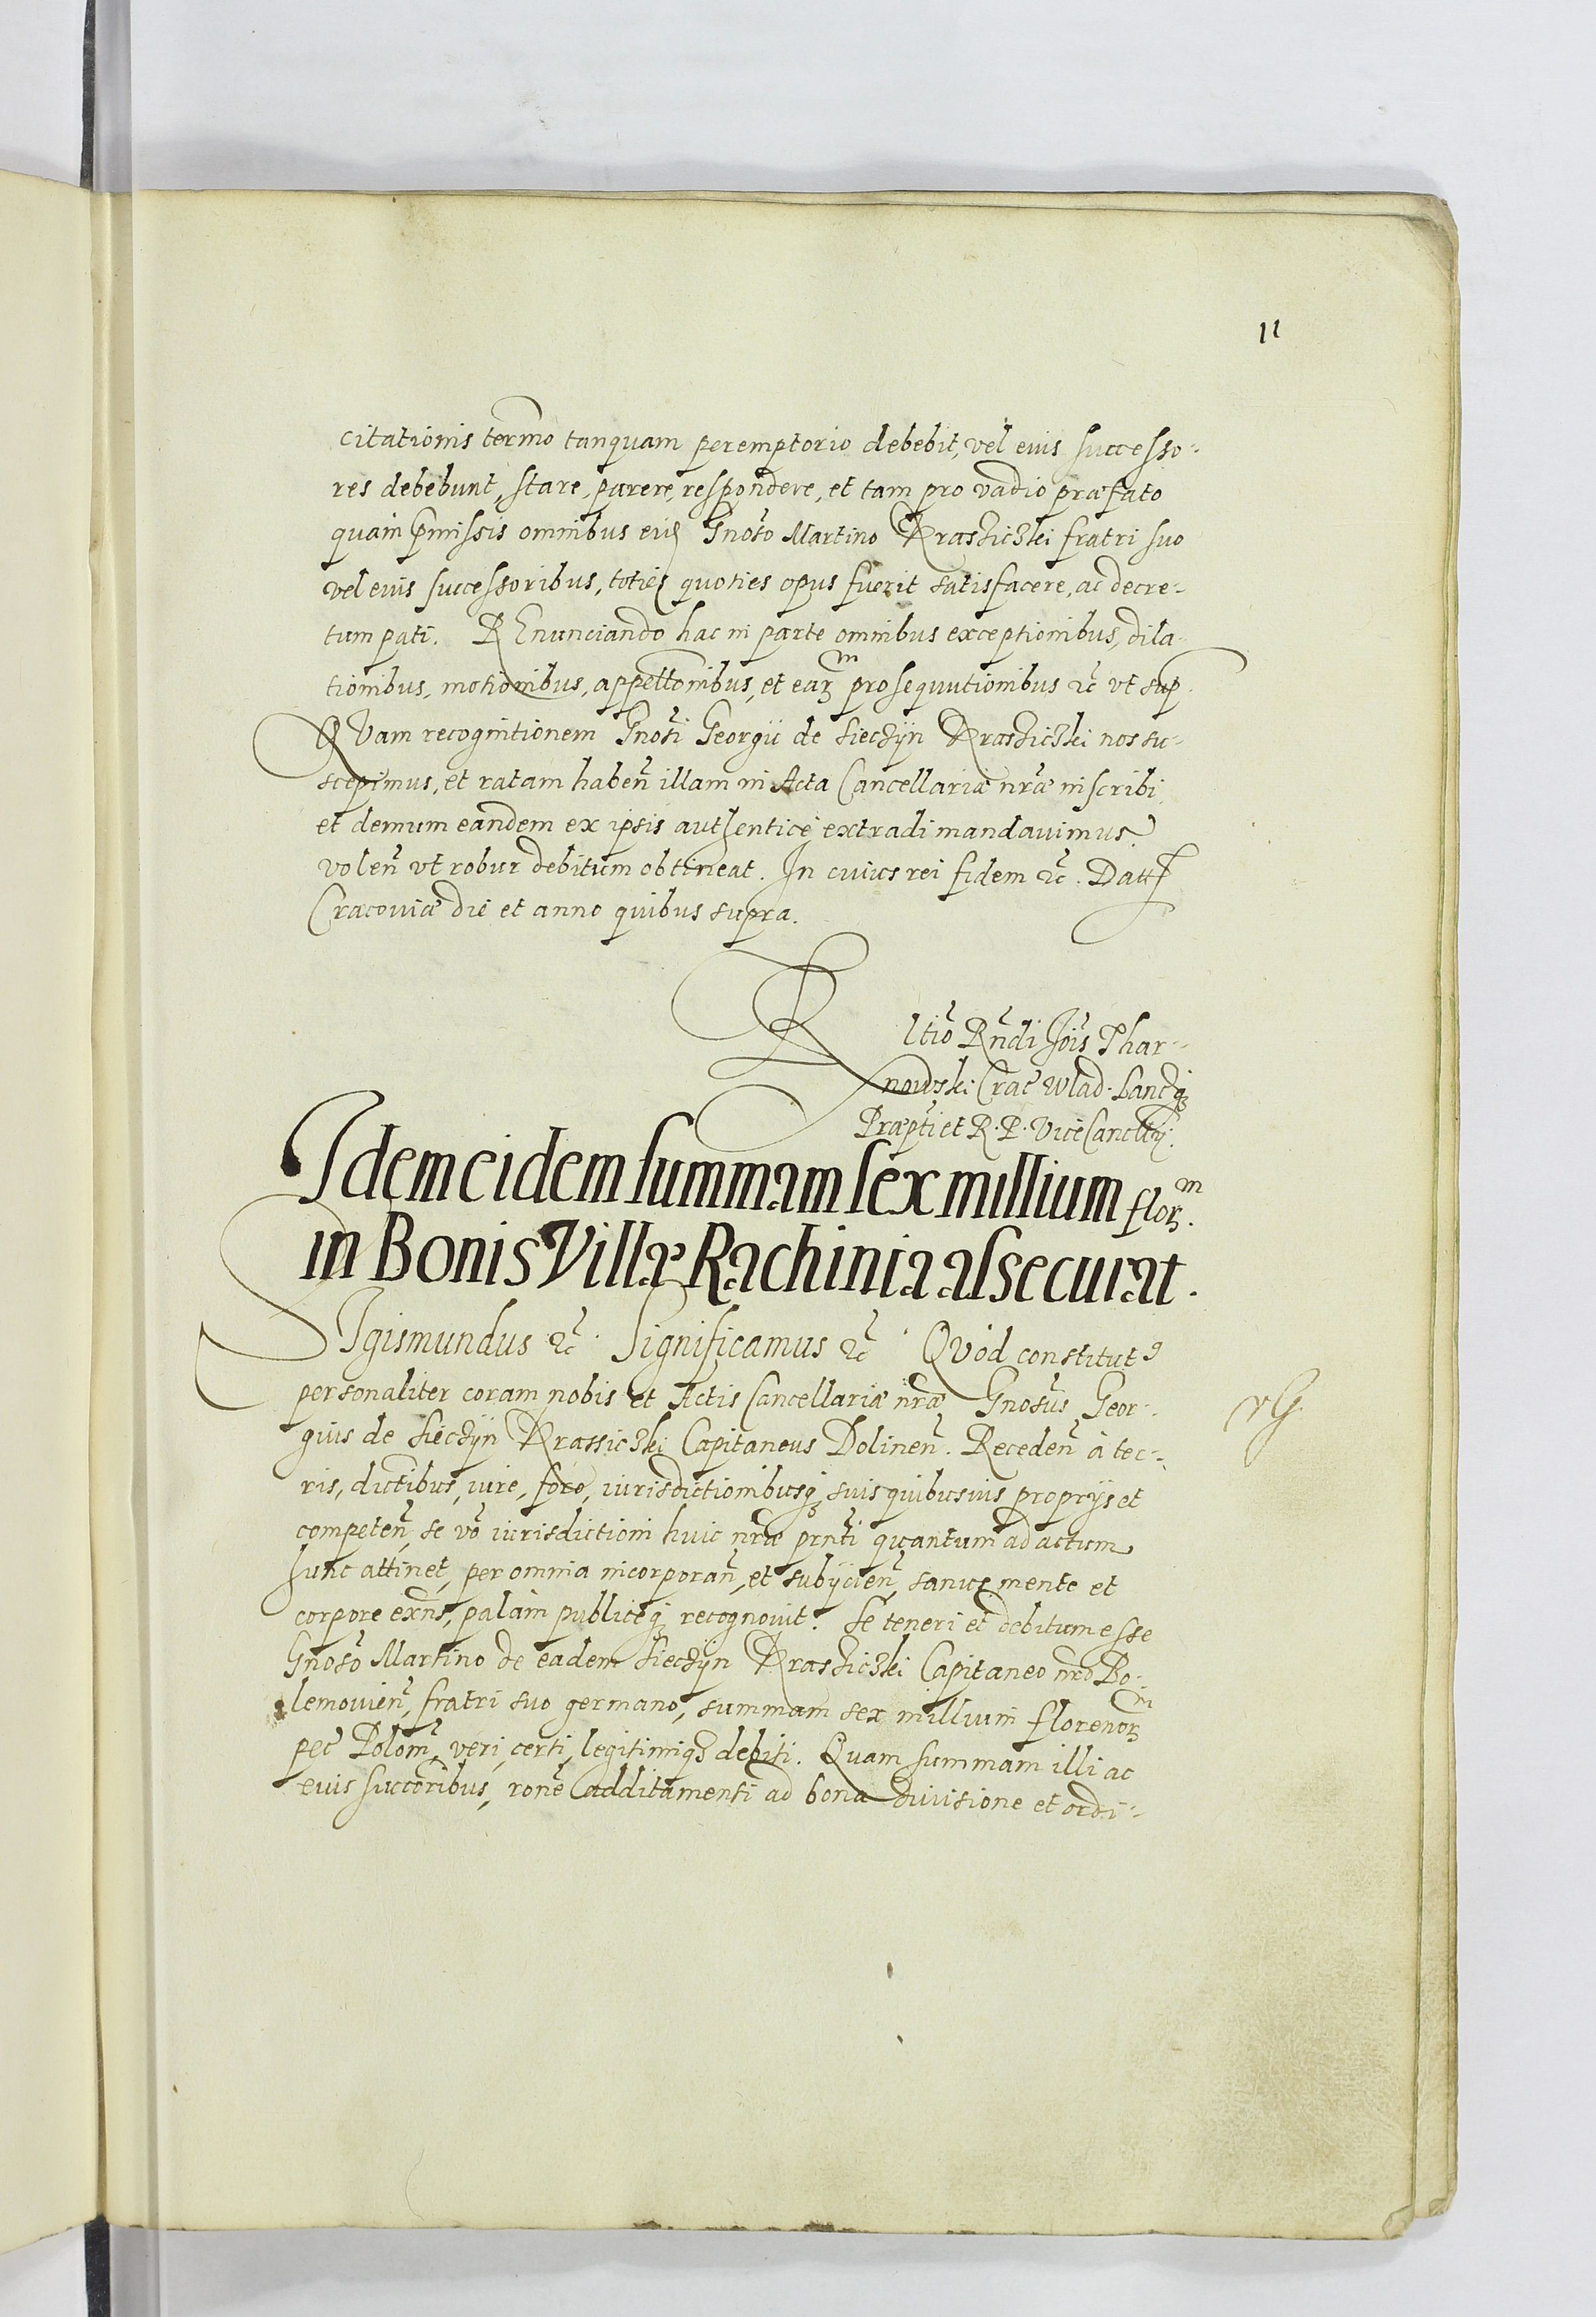 11
citationis termō tanquam peremptorio debebit, vel eius successo-
res debebunt, stare, parere, respondere, et tam pro vadio præfato
quam p̄missis omnibus eid Gnōso Martino Krassiczki fratri suo
vel eius successoribus, toties quoties opus fuerit satisfacere, ac decre-
tum pati. REnunciando hac in parte omnibus exceptionibus, dila-
tionibus, motionibus, appellōnibus, et earꝝ prosequutionibus &c̄ vt sup.
QVam recognitionem Gnōsi Georgii de Sieczÿn Krassiczki nos su-
scepimus, et ratam haben̄ illam in Acta Cancellariæ nrǣ inscribi,
et demum eandem ex ipsis authentice extradi mandauimus.
volen̄ vt robur debitum obtineat. In cuius rei fidem &c̄. Datt
Cracouiæ die et anno quibus supra.
R
ltio Rn̄di Jois Thar-
nowski Crac̄ Wlad. Lancꝫ
Præpti et R. P. ViceCancllÿ.
Idem eidem summam sex millium florꝝ.
in Bonis Villæ Rachinia assecurat.
SIgismundus &c̄. Significamus &c̄. QVod constitutꝰ
personaliter coram nobis et Actis Cancellariæ nrǣ Gnōsus Geor-
gius de Sieczÿn Krassiczki Capitaneus Dolinen̄. Receden̄ à ter-
ris, dictibus, iure, foro, iurisdictionibusqꝫ suis quibusuis proprÿs et
competen̄, se vō iurisdictioni huic nrǣ prn̄ti quantum ad actum
hunc attinet, per omnia incorporan̄, et subÿcien̄, sanus mente et
corpore exn̄s, palam publiceqꝫ recognouit. Se teneri et debitum esse
Gnōso Martino de eadem Sieczÿn Krassiczki Capitaneo nrō Bo-
lemouien̄, fratri suo germano, summam sex millium florenorꝝ
pec̄ Polon̄, veri, certi, legitimiqꝫ debiti. Quam summam illi ac
eius succōribus, ronē additamenti ad bona diuisione et ordi-